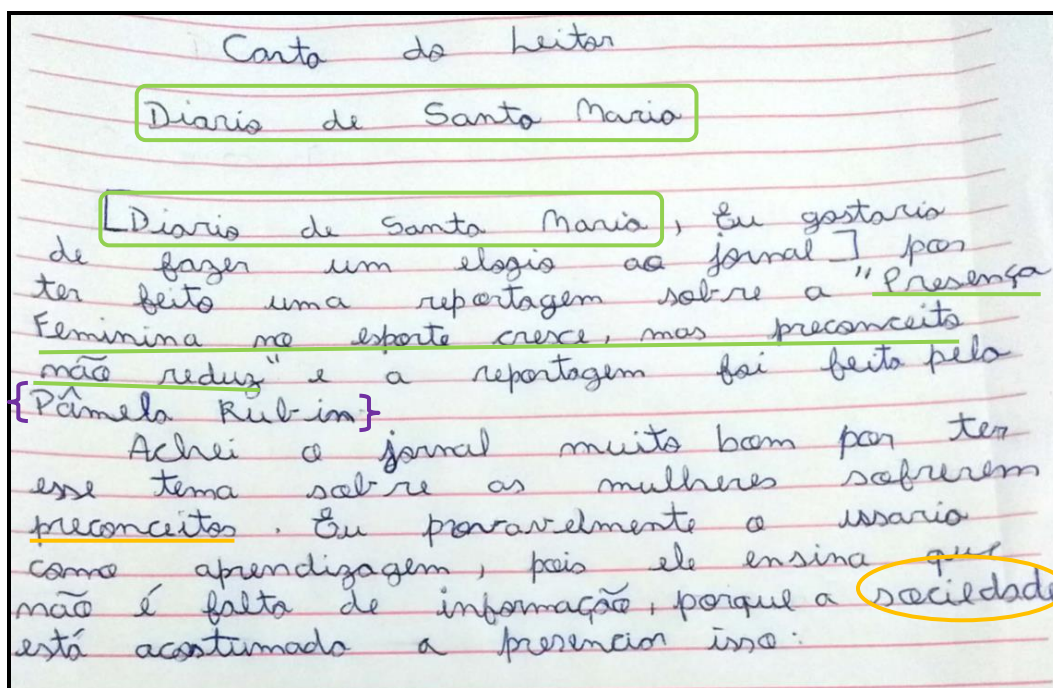 Carta do Leitor
Diario de Santa Maria
[Diario de Santa Maria, Eu gostaria
de fazer um elogio ao jornal] por
ter feito uma reportagem sobre a "Presença
Feminina no esporte cresce, mas preconceito
não reduz" e a reportagem foi feita pela
{Pâmela Rubin}
Achei o jornal muito bom por ter
esse tema sobre as mulheres sofrerem
preconceitos. Eu provavelmente o ussaria
como aprendizagem, pois ele ensina que
não é falta de informação, porque a sociedade
está acostumada a presenciar isso.